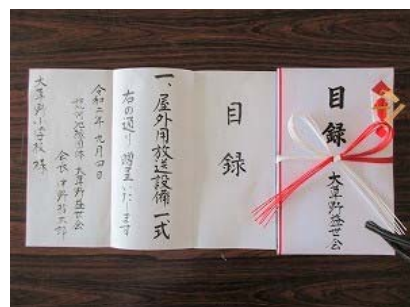 目録
大草野益世会
目録
一、屋外用放送設備一式
右の通り贈呈いたします
令和二年九月四日
大草野益世会
会長
大草野小学校 様